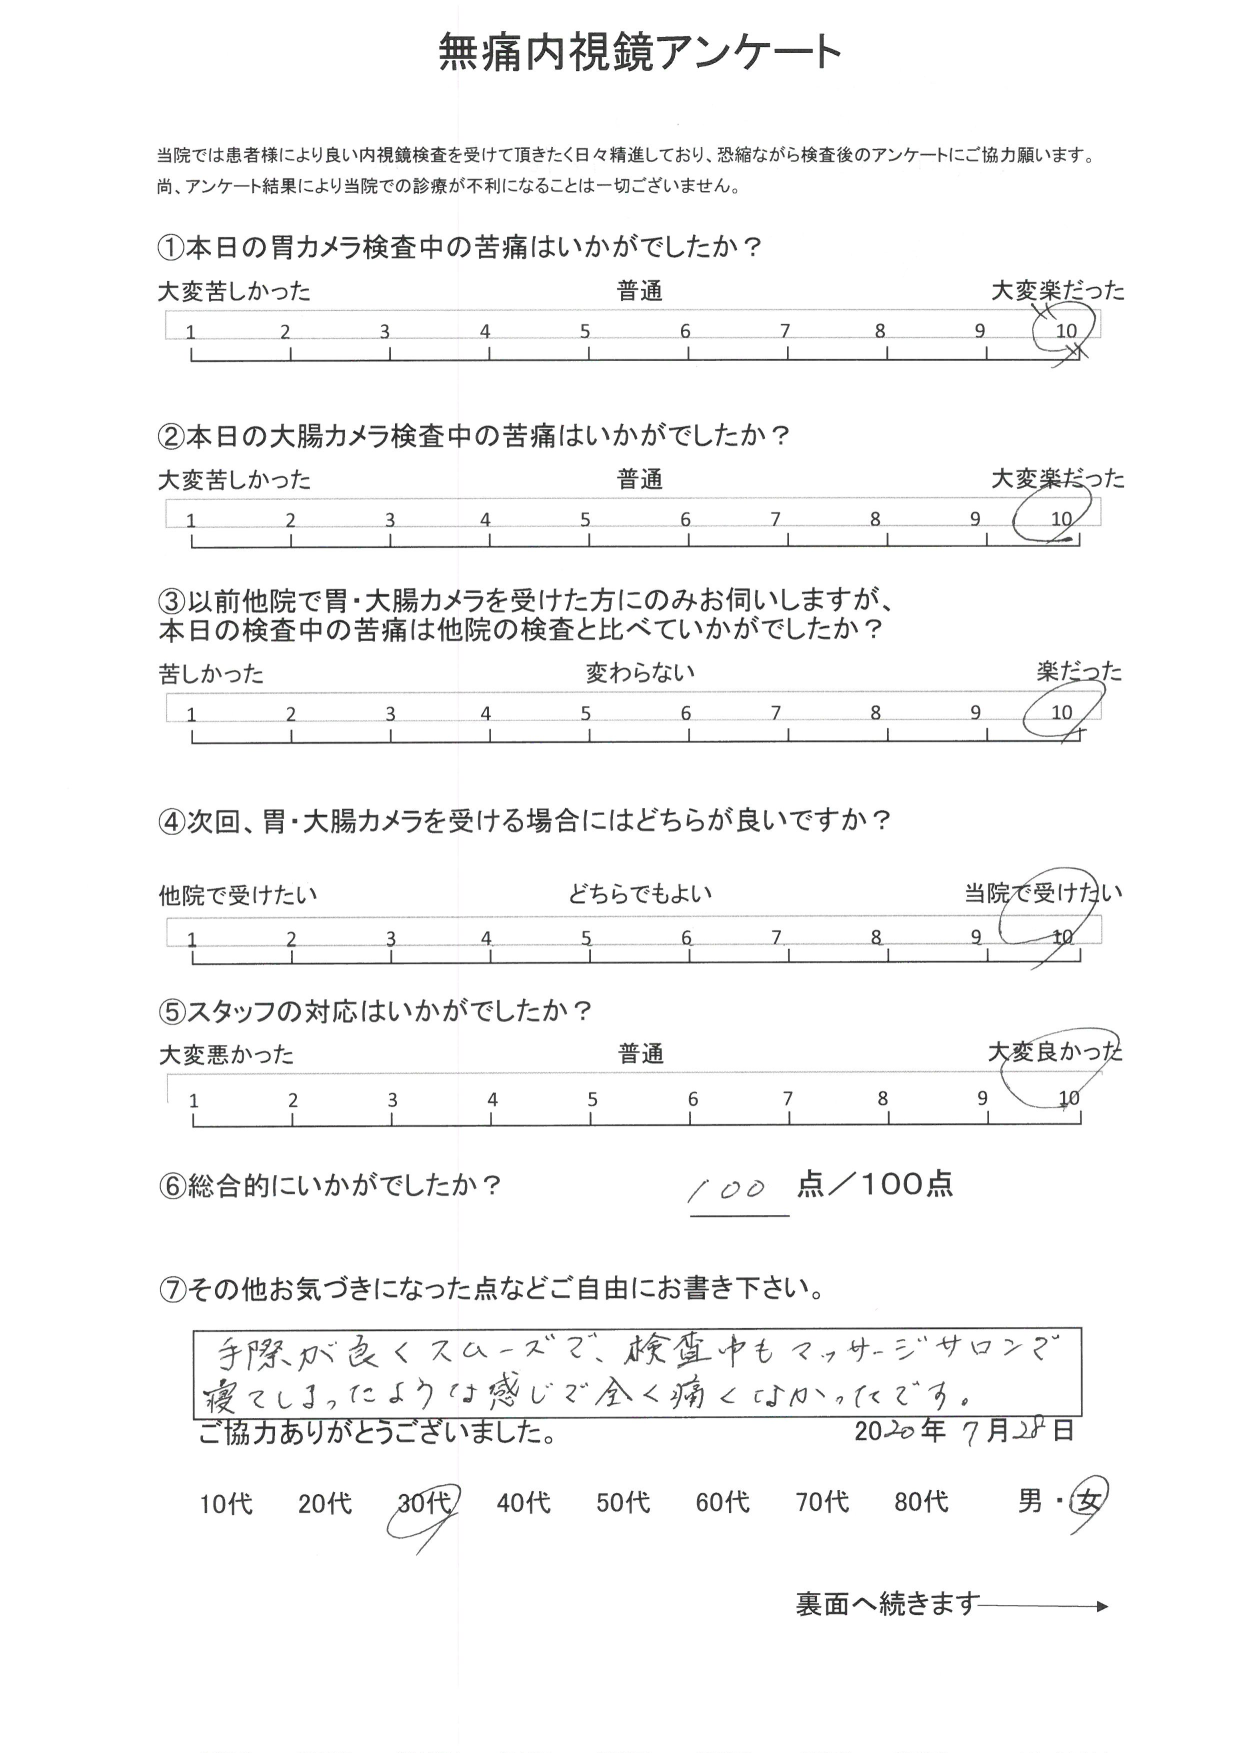 無痛内視鏡アンケート
当院では患者様により良い内視鏡検査を受けて頂きたく日々精進しており、恐縮ながら検査後のアンケートにご協力願います。
尚、アンケート結果により当院での診療が不利になることは一切ございません。
①本日の胃カメラ検査中の苦痛はいかがでしたか？
大変苦しかった 普通 大変楽だった
1 2 3 4 5 6 7 8 9 10
②本日の大腸カメラ検査中の苦痛はいかがでしたか？
大変苦しかった 普通 大変楽だった
1 2 3 4 5 6 7 8 9 10
③以前他院で胃・大腸カメラを受けた方にのみお伺いしますが、
本日の検査中の苦痛は他院の検査と比べていかがでしたか？
苦しかった 変わらない 楽だった
1 2 3 4 5 6 7 8 9 10
④次回、胃・大腸カメラを受ける場合にはどちらが良いですか？
他院で受けたい どちらでもよい 当院で受けたい
1 2 3 4 5 6 7 8 9 10
⑤スタッフの対応はいかがでしたか？
大変悪かった 普通 大変良かった
1 2 3 4 5 6 7 8 9 10
⑥総合的にいかがでしたか？ 100 点／100点
⑦その他お気づきになった点などご自由にお書き下さい。
手際が良くスムーズで、検査中もマッサージサロンで
寝てしまったような感じで全く痛くなかったです。
ご協力ありがとうございました。 2020年 7月28日
10代 20代 30代 40代 50代 60代 70代 80代 男・女
裏面へ続きます